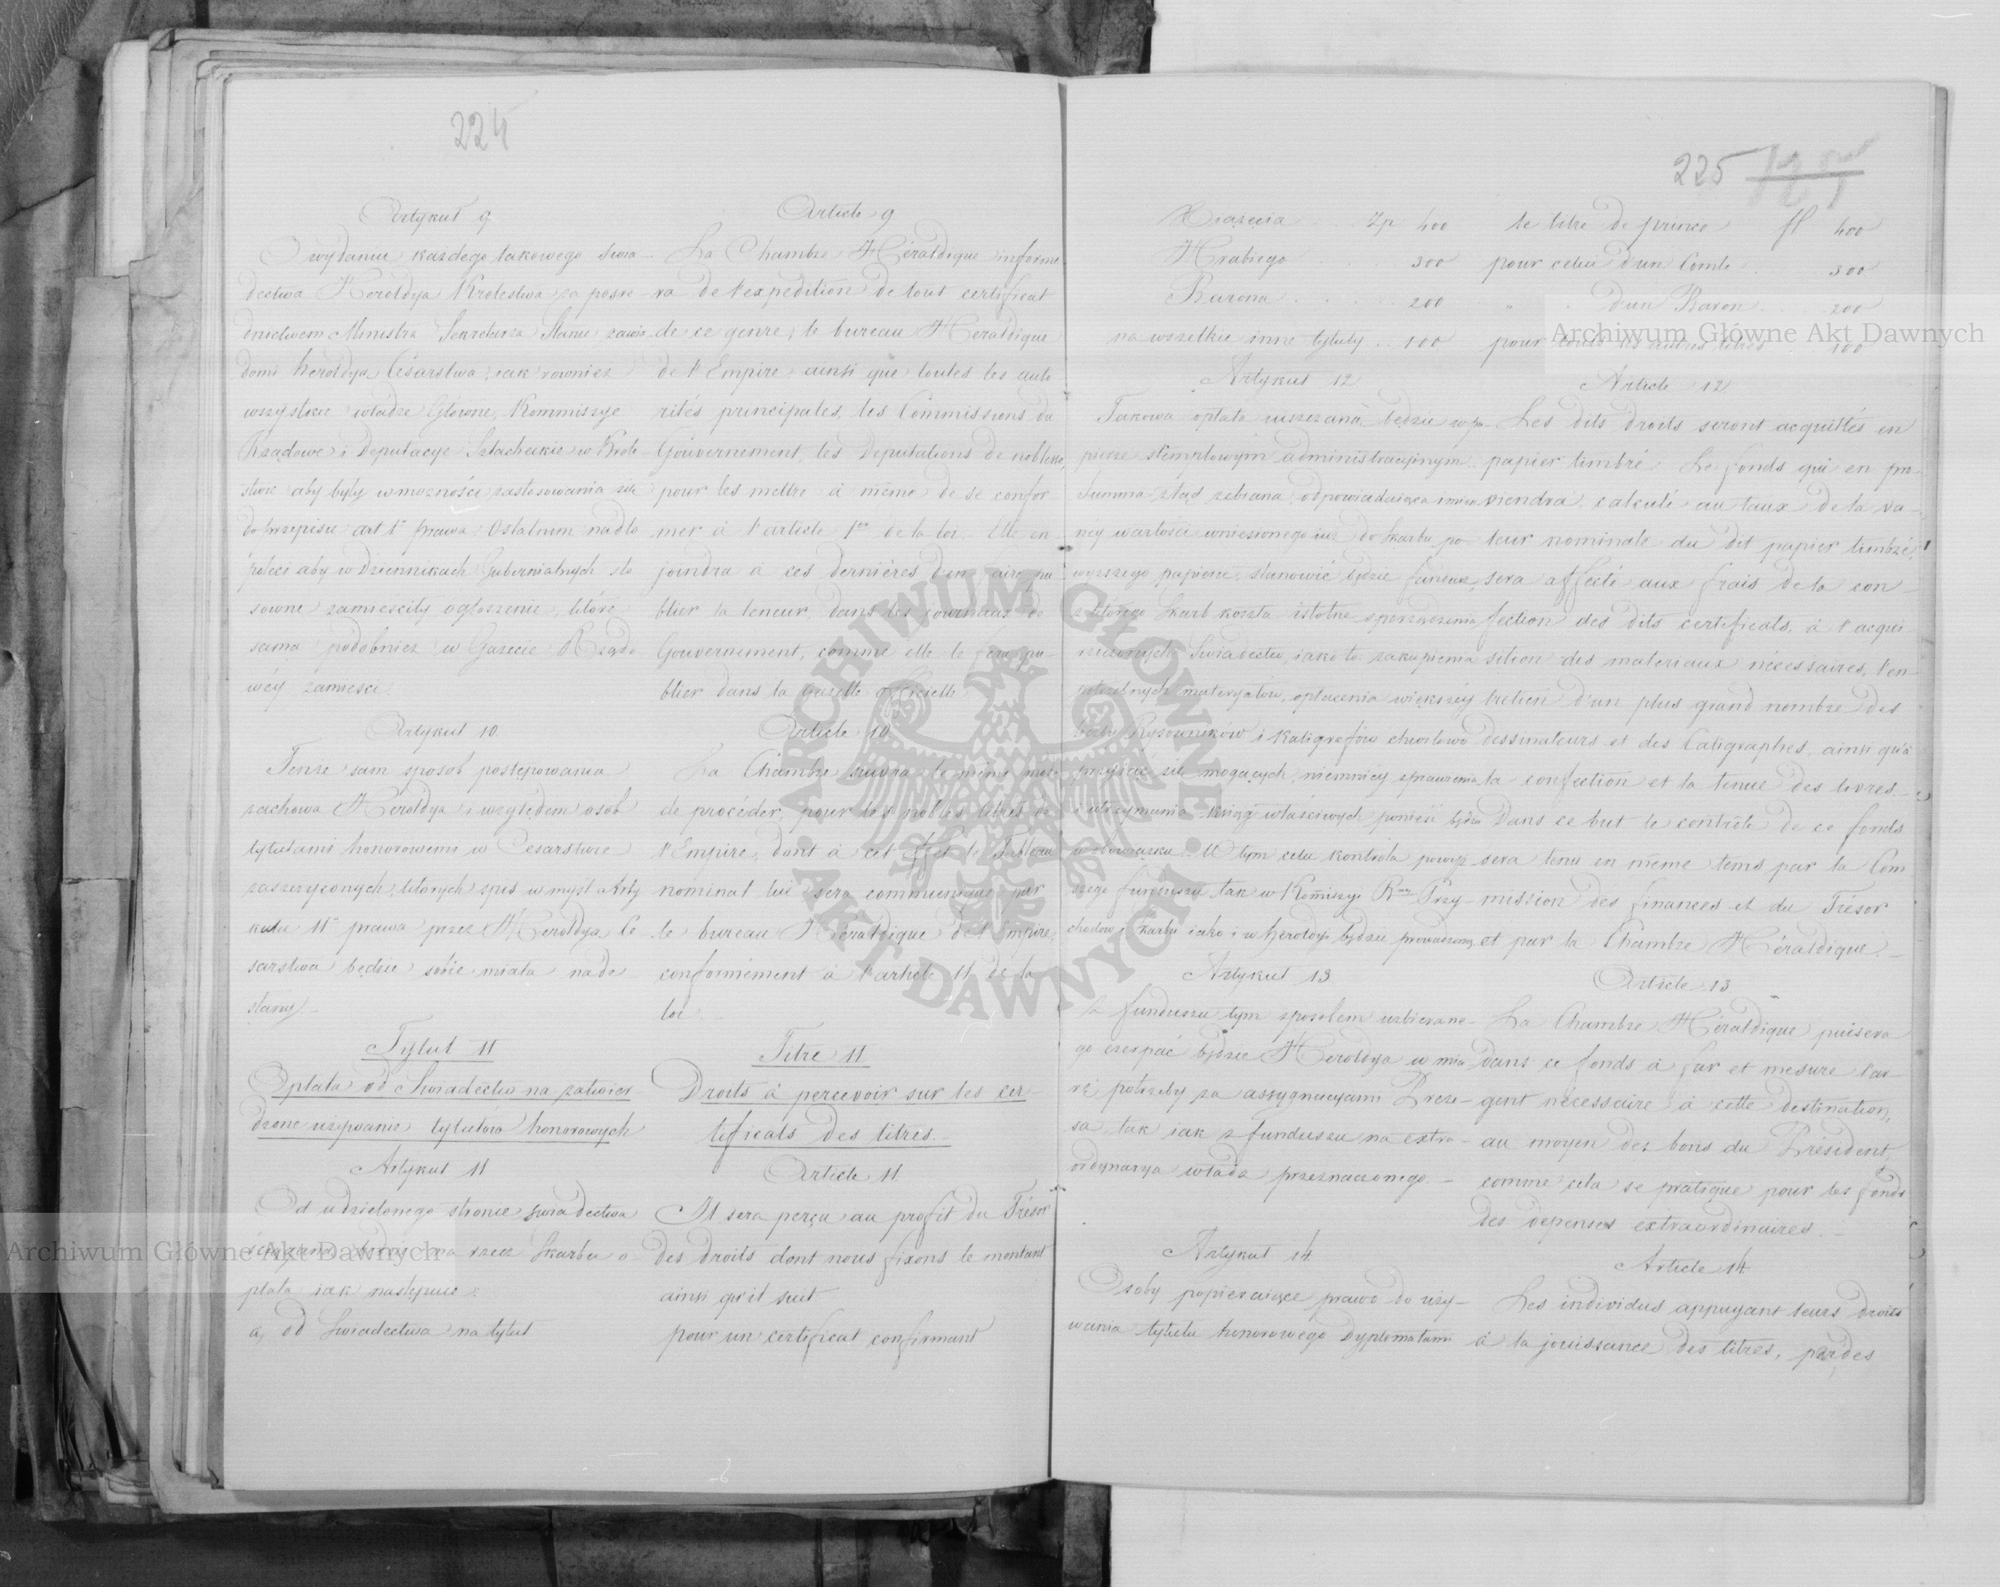 224
Artykuł 9
O wydaniu każdego takowego świa-
dectwa Heroldya Królestwa za pośre-
dnictwem Ministra Sekretarza Stanu zawia-
domi heroldya Césarstwa, iak również
wszystkie władze Główne, Kommissye
Rządowe i Deputacye Szlacheckie w Króle-
stwie aby były w możności zastosowania się
do przepisu art 1o prawa. Ostatnim nadto
poleci aby w Dziennikach Gubernialnych sto
sowne zamieściły ogłoszenie, które
sama podobnież w Gazecie Rządo
wéy zamieści.
Artykuł 10
Tenże sam sposób postępowania
zachowa Heroldya i względem osób
tytułami honorowemi w Cesarstwie
zaszczyconych, których spis w myśl Arty
kułu 11o prawa przez Heroldya Ce
sarstwa będzie sobie miała nade
słany.
Tytuł II
Opłata od Świadectw na zatwier
dzone używanie tytułów honorowych
Artykuł 11
Od udzielonego stronie świadectwa
ściąganą będzie na rzecz Skarbu o-
płata iak następuie:
a, od Świadectwa na tytuł
Article 9
La Chambre Héraldique informe-
ra de l'expédition de tout certificat
de ce genre, le bureau Héraldique
de l'Empire ainsi que toutes les auto
rités principales, les Commissions du
Gouvernement, les Deputations de noblesse,
pour les mettre à même de se confor
mer à l'article 1er de la loi. Elle en
joindra à ces dernières d'en faire pu
blier la teneur, dans les journaux de
Gouvernement, comme elle le fera pu-
blier dans la gazette officielle.
Article 10
La Chambre suivra le même mode
de procéder, pour les nobles titrés de
l'Empire, dont à cet effet le Tableau
nominal lui sera communiqué par
le bureau Héraldique de l'Empire,
conformément à l'article 11 de la
loi.
Titre II
Droits à percevoir sur les cer-
tificats des titres.
Article 11
Il sera perçu au profit du Trésor
des droits dont nous fixons le montant
ainsi qu'il suit
pour un certificat confirmant
225
Xiążęcia . . Zp 400
Hrabiego . . 300
Barona . . . . 200
na wszelkie inne tytuły . . 100
Artykuł 12
Takowa opłata uiszczaną będzie w pa-
pierze stemplowym administracyjnym.
Summa ztąd zebrana, odpowiadaiąca imien
ney wartości wniesionego iuż do skarbu po-
wyższego papieru, stanowić będzie fundusz,
z którego Skarb koszta istotne sporządzenia
rzeczonych Świadectw, iako to: zakupienia
potrzebnych materyałów, opłacenia większéy
liczby Rysowników i Kaligrafów chwilowo
przyiąć się mogących, niemniéy sprawienia
i utrzymania ksiąg właściwych ponieść będzie
w obowiązku. W tym celu kontrola powyż
szego funduszu tak w Kommissyi Rzą: Przy-
chodów i Skarbu iako i w heroldyi będzie prowadzoną
Artykuł 13
Z funduszu tym sposobem uzbierane-
go czerpać będzie Heroldya w mia
rę potrzeby za assygnacyami Preze-
sa, tak iak z funduszu na extra-
ordynarya władz przeznaczonego.
Artykuł 14
Osoby popieraiące prawo do uży-
wania tytułu honorowego Dyplomatami
le titre de prince fl 400
pour celui d'un Comte . 300
" . d'un Baron . . 200
pour tous les autres titres 100
Article 12
Les dits droits seront acquittés en
papier timbré. Le fonds qui en pro-
viendra, calculé au taux de la va-
leur nominale du dit papier timbré,
sera affecté aux frais de la con-
fection des dits certificats, à l'acqui
sition des materiaux nécessaires, l'en
tretien d'un plus grand nombre des
dessinateurs et des Caligraphes, ainsi qu'à
la confection et la tenue des livres.
Dans ce but le contrôle de ce fonds
sera tenu en même tems par la Com
mission des finances et du Trésor
et par la Chambre Héraldique.
Article 13
La Chambre Héraldique puisera
dans ce fonds à fur et mesure l'ar
gent nécessaire à cette destination,
au moyen des bons du Président,
comme cela se pratique pour les fonds
des depenses extraordinaires.
Article 14
Les individus appuyant leurs droits
à la jouissance des titres, par des
Archiwum Główne Akt Dawnych
Archiwum Główne Akt Dawnych
ARCHIWUM GŁÓWNE AKT DAWNYCH